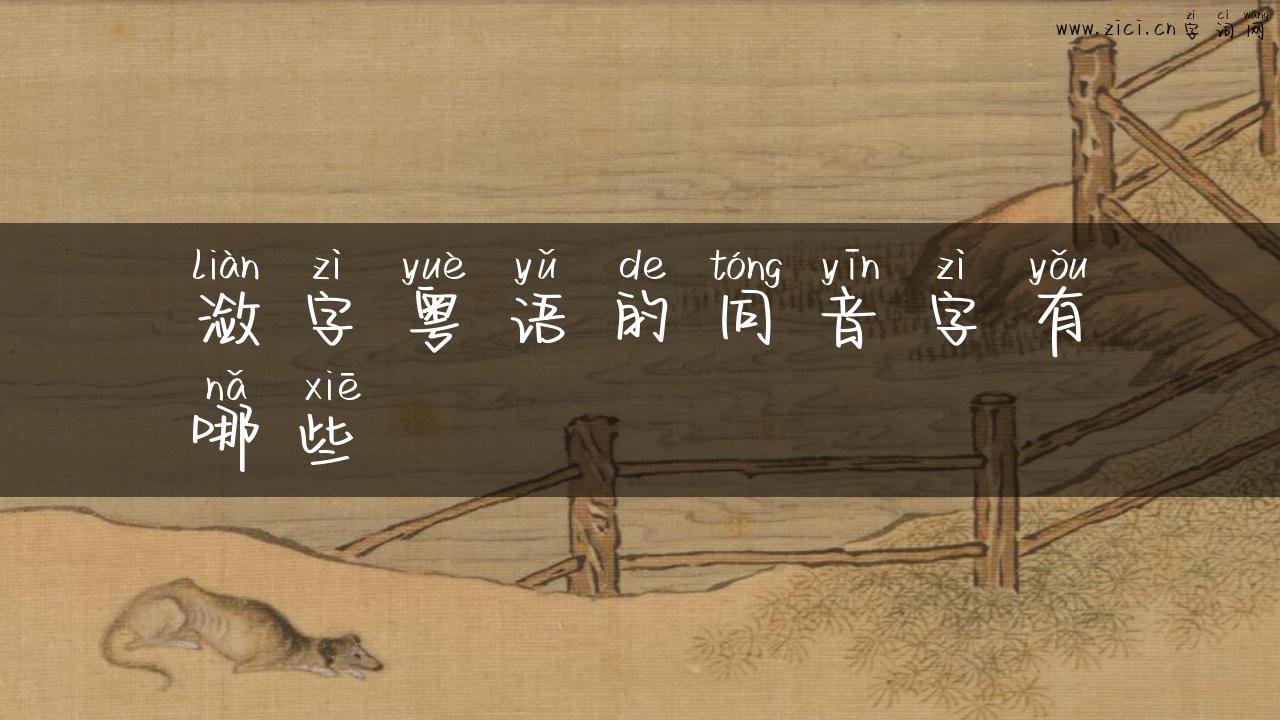 zì cí wǎng
www.zici.cn 字词网
liàn zì yuè yǔ de tóng yīn zì yǒu
潋字粤语的同音字有
nǎ xiē
哪些